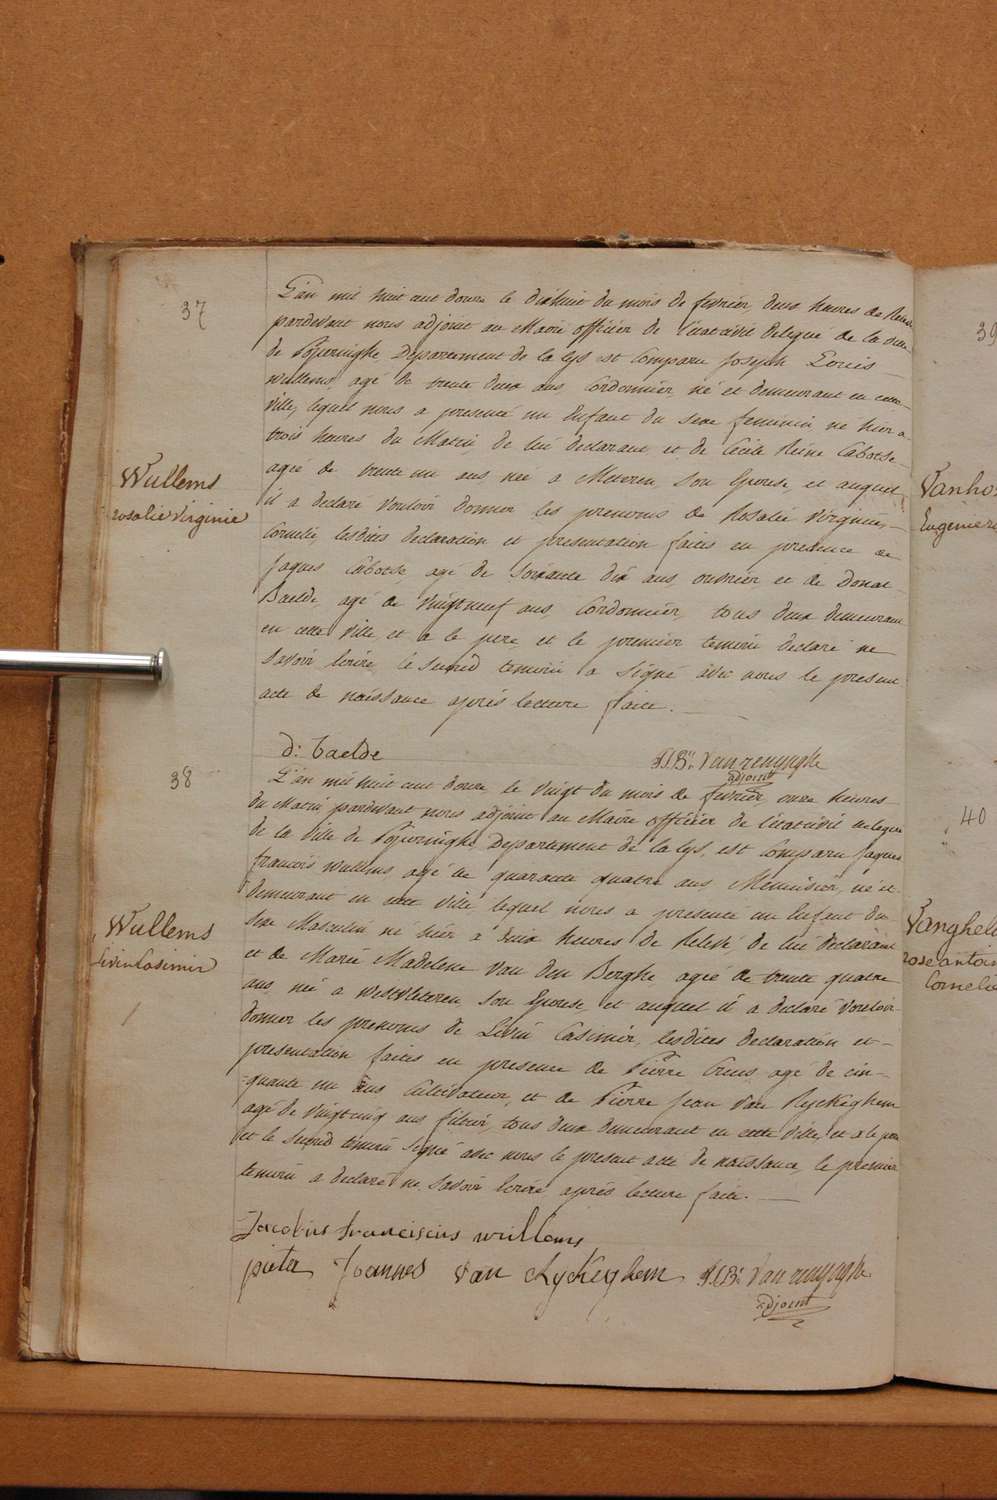 37
L'an mil huit cent douze le dixhuit du mois de fevrier, deux heures de
pardevant nous adjoint au Maire officier de l'etat civil delegué de la ville
de Poperinghe Departement de la Lys est Comparu Joseph Louis
Wullems, agé de trente deux ans, Cordonnier, né et demeurant en cette
ville, lequel nous a presenté un Enfant du sexe feminin né hier a
trois heures du Matin, de lui declarant et de Cécile Reine Cabotse
agée de trente un ans, née a Meteren, son Epouse, et auquel
il a declaré vouloir donner les prenoms de Rosalie Virginie,
Wullems
rosalie Virginie
Cornelie, lesdites declaration et presentation faites en presence de
Jaques Cabotse, agé de soixante dix ans, ouvrier et de Donat
Baelde, agé de vingt neuf ans, Cordonnier, tous deux demeurant
en cette ville, et a le pere, et le premier temoin declaré ne
savoir Ecrire, le second temoin a signé avec nous le present
acte de naissance après lecture faite.
d: baelde
J.Bte Vanrenynghe
adjoint
38
L'an mil huit cent douze, le vingt du mois de fevrier, onze heures
du Matin pardevant nous adjoint au Maire officier de l'etat civil delegué
de la Ville de Poperinghe Departement de la Lys, est Comparu Jaques
francois Wullems agé de quarante quatre ans Menuisier, né et
demeurant en cette ville, lequel nous a presenté un Enfant du
sexe Masculin né hier à deux heures de Relevé, de lui declarant
et de Marie Madelene Van den Berghe agée de trente quatre
ans née a Westvleteren son Epouse, et auquel il a declaré vouloir
Wullems
Livin Casimir
donner les prenoms de Livin Casimir, lesdites declaration et
presentation faites en presence de Pierre Creus agé de cin-
=quante un ans Cultivateur, et de Pierre Jean Van Ryckeghem
agé de vingt cinq ans, tous deux demeurant en cette Ville, et a le pere
et le second temoin signé avec nous le present acte de naissance, le premier
temoin a declaré ne savoir Ecrire après lecture faite.
Jacobus franciscus wullems
pieter Joannes Van Ryckeghem
J.Bte Vanrenynghe
adjoint
39
Vanho
Eugenie
40
Vanghel
rose antoin
Cornelie